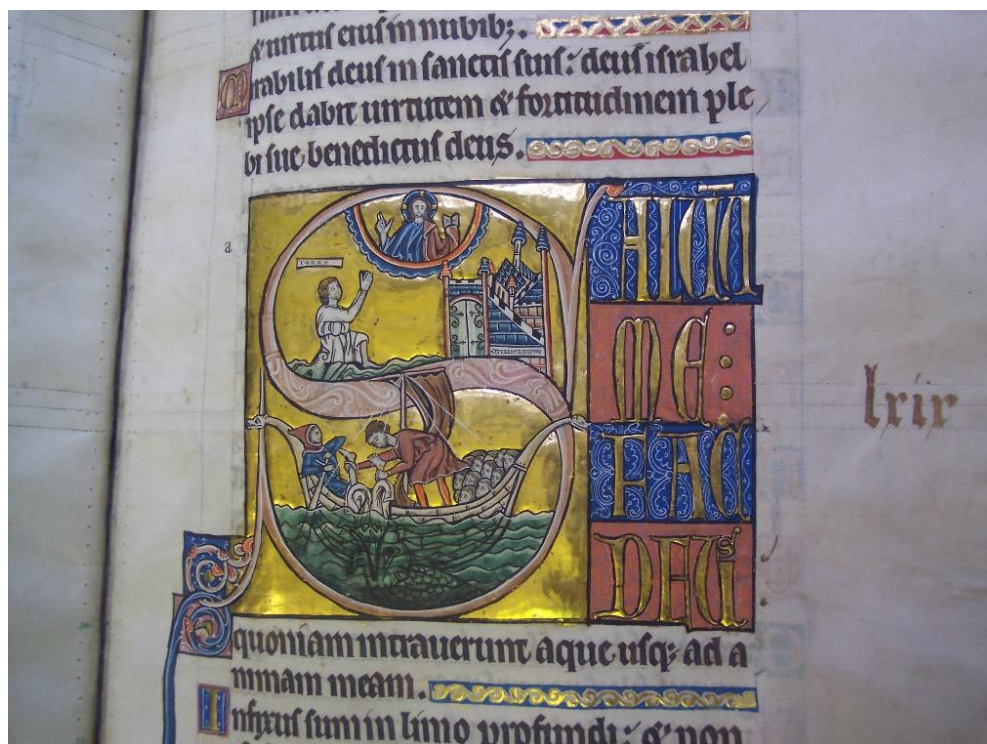 & uirtus eius in nubib;.
Mirabilis deus in sanctis suis: deus israhel
ipse dabit uirtutem & fortitudinem ple
bi sue benedictus deus.
a
SALUU
ME
FAC
DEUS
lxix
quoniam intrauerunt aque usq; ad a
nimam meam.
Infixus sum in limo profundi: & non